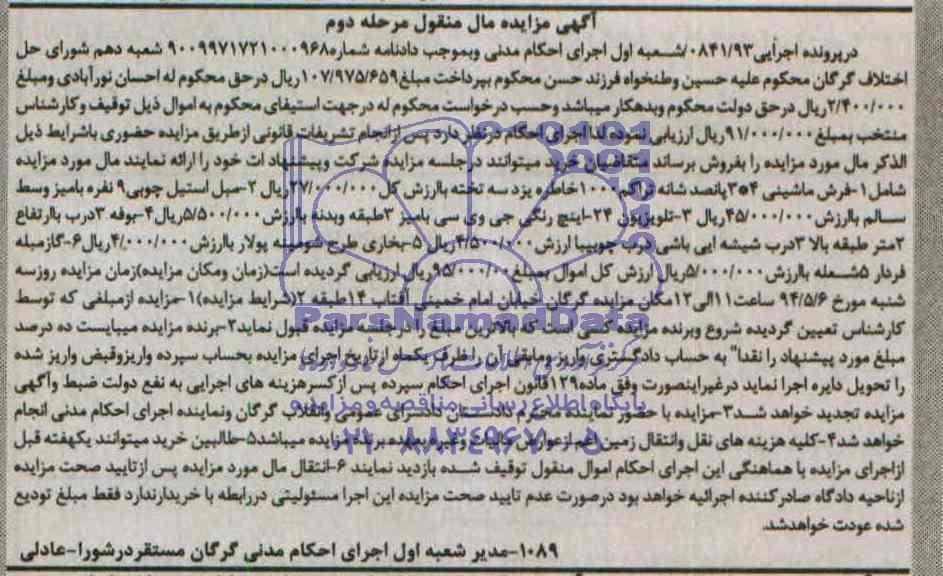 آگهی مزایده مال منقول مرحله دوم
درپرونده اجرایی۰۸۴۱/۹۳/شـعبه اول اجرای احکام مدنی وبموجب دادنامه شماره۹۰۰۹۹۷۱۷۲۱۰۰۰۹۶۸ شعبه دهم شورای حل
اختلاف گرگان محکوم علیه حسین وطنخواه فرزند حسن محکوم بپرداخت مبلغ۱۰۷/۹۷۵/۶۵۹ریال درحق محکوم له احسان نورآبادی ومبلغ
۲/۴۰۰/۰۰۰ریال درحق دولت محکوم وبدهکار میباشد وحسب درخواست محکوم له درجهت استیفای محکوم به اموال ذیل توقیف وکارشناس
منتخب بمبلغ۹۱/۰۰۰/۰۰۰ریال ارزیابی نموده لذا اجرای احکام درنظر دارد پس ازانجام تشریفات قانونی ازطریق مزایده حضوری باشرایط ذیل
الذکر مال مورد مزایده را بفروش برساند متقاضیان خرید میتوانند درجلسه مزایده شرکت وپیشنهاد ات خود را ارائه نمایند مال مورد مزایده
شامل۱-فرش ماشینی ۴*۳پانصد شانه تراکم۱۰۰۰خاطره یزد سه تخته باارزش کل۲۷/۰۰۰/۰۰۰ریال ۲-مبل استیل چوبی۹ نفره بامیز وسط
سـالم باارزش۴۵/۰۰۰/۰۰۰ریال ۳-تلویزیون ۲۴-اینچ رنگی جی وی سی بامیز ۳طبقه وبدنه باارزش۵/۵۰۰/۰۰۰ریال۴-بوفه ۳درب باارتفاع
۲متر طبقه بالا ۳درب شیشه ایی باشی درب چوبیبا ارزش۴/۵۰۰/۰۰۰ریال ۵-بخاری طرح شومینه پولار باارزش۴/۰۰۰/۰۰۰ریال۶-گازمبله
فردار ۵شـعله باارزش۵/۰۰۰/۰۰۰ریال ارزش کل اموال بمبلغ۹۵/۰۰۰/۰۰۰ریال ارزیابی گردیده است(زمان ومکان مزایده)زمان مزایده روزسه
شنبه مورخ ۹۴/۵/۶ ساعت۱۱الی۱۲مکان مزایده گرگان خیابان امام خمینی آفتاب ۱۴طبقه ۲(شرایط مزایده)۱-مزایده ازمبلغی که توسط
کارشناس تعیین گردیده شروع وبرنده مزایده کسی است که بالاترین مبلغ را درجلسه مزایده قبول نماید۲-برنده مزایده میبایست ده درصد
مبلغ مورد پیشنهاد را نقدا" به حساب دادگستری واریز ومابقی آن را ظرف یکماه ازتاریخ اجرای مزایده بحساب سپرده واریزوقبض واریز شده
را تحویل دایره اجرا نماید درغیراینصورت وفق ماده۱۲۹قانون اجرای احکام سپرده پس ازکسرهزینه های اجرایی به نفع دولت ضبط وآگهی
مزایده تجدید خواهد شـد۳-مزایده با حضور نماینده محترم دادستان دادسرای عمومی وانقلاب گرگان ونماینده اجرای احکام مدنی انجام
خواهد شد۴-کلیه هزینه های نقل وانتقال زمین اعم ازعوارض مالیات وغیره بعهده برنده مزایده میباشد۵-طالبین خرید میتوانند یکهفته قبل
ازاجرای مزایده با هماهنگی این اجرای احکام اموال منقول توقیف شـده بازدید نمایند ۶-انتقال مال مورد مزایده پس ازتایید صحت مزایده
ازناحیه دادگاه صادرکننده اجرائیه خواهد بود درصورت عدم تایید صحت مزایده این اجرا مسئولیتی دررابطه با خریدارندارد فقط مبلغ تودیع
شده عودت خواهدشد.
۱۰۸۹-مدیر شعبه اول اجرای احکام مدنی گرگان مستقردرشورا-عادلی
ParsNamadData
پایگاه اطلاع رسانی مناقصه ومزایده
۰۲۱-۸۸۳۴۹۶۷۰-۵